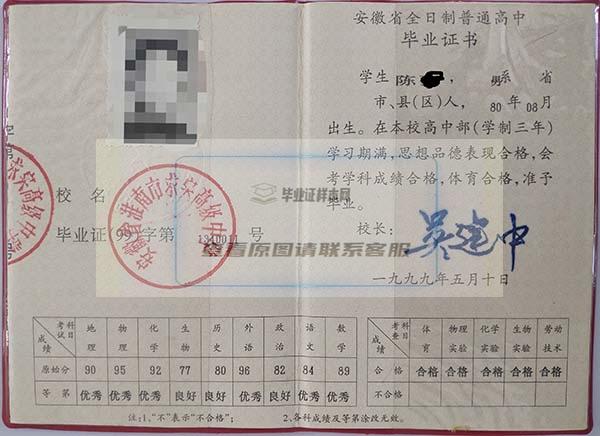 安徽省全日制普通高中
毕业证书
学生 陈 ，男系 省
市、县(区)人，80年08月
出生。在本校高中部(学制三年)
学习期满，思想品德表现合格，会
考学科成绩合格，体育合格，准予
毕业。
校长：吴建中
一九九九年五月十日
校名
毕业证 99 字第 1300 号
安徽省淮南市 高级中
毕业证样本网
查看原图请联系客服
考试科目 成绩 地理 物理 化学 生物 历史 外语 政治 语文 数学
原始分 90 95 92 77 80 96 82 84 89
等第 优秀 优秀 优秀 良好 良好 优秀 良好 优秀 优秀
考查科目 成绩 体育 物理实验 化学实验 生物实验 劳动技术
合格 合格 合格 合格 合格 合格
不合格
注:1、"不"表示"不合格"； 2、各科成绩及等第涂改无效。